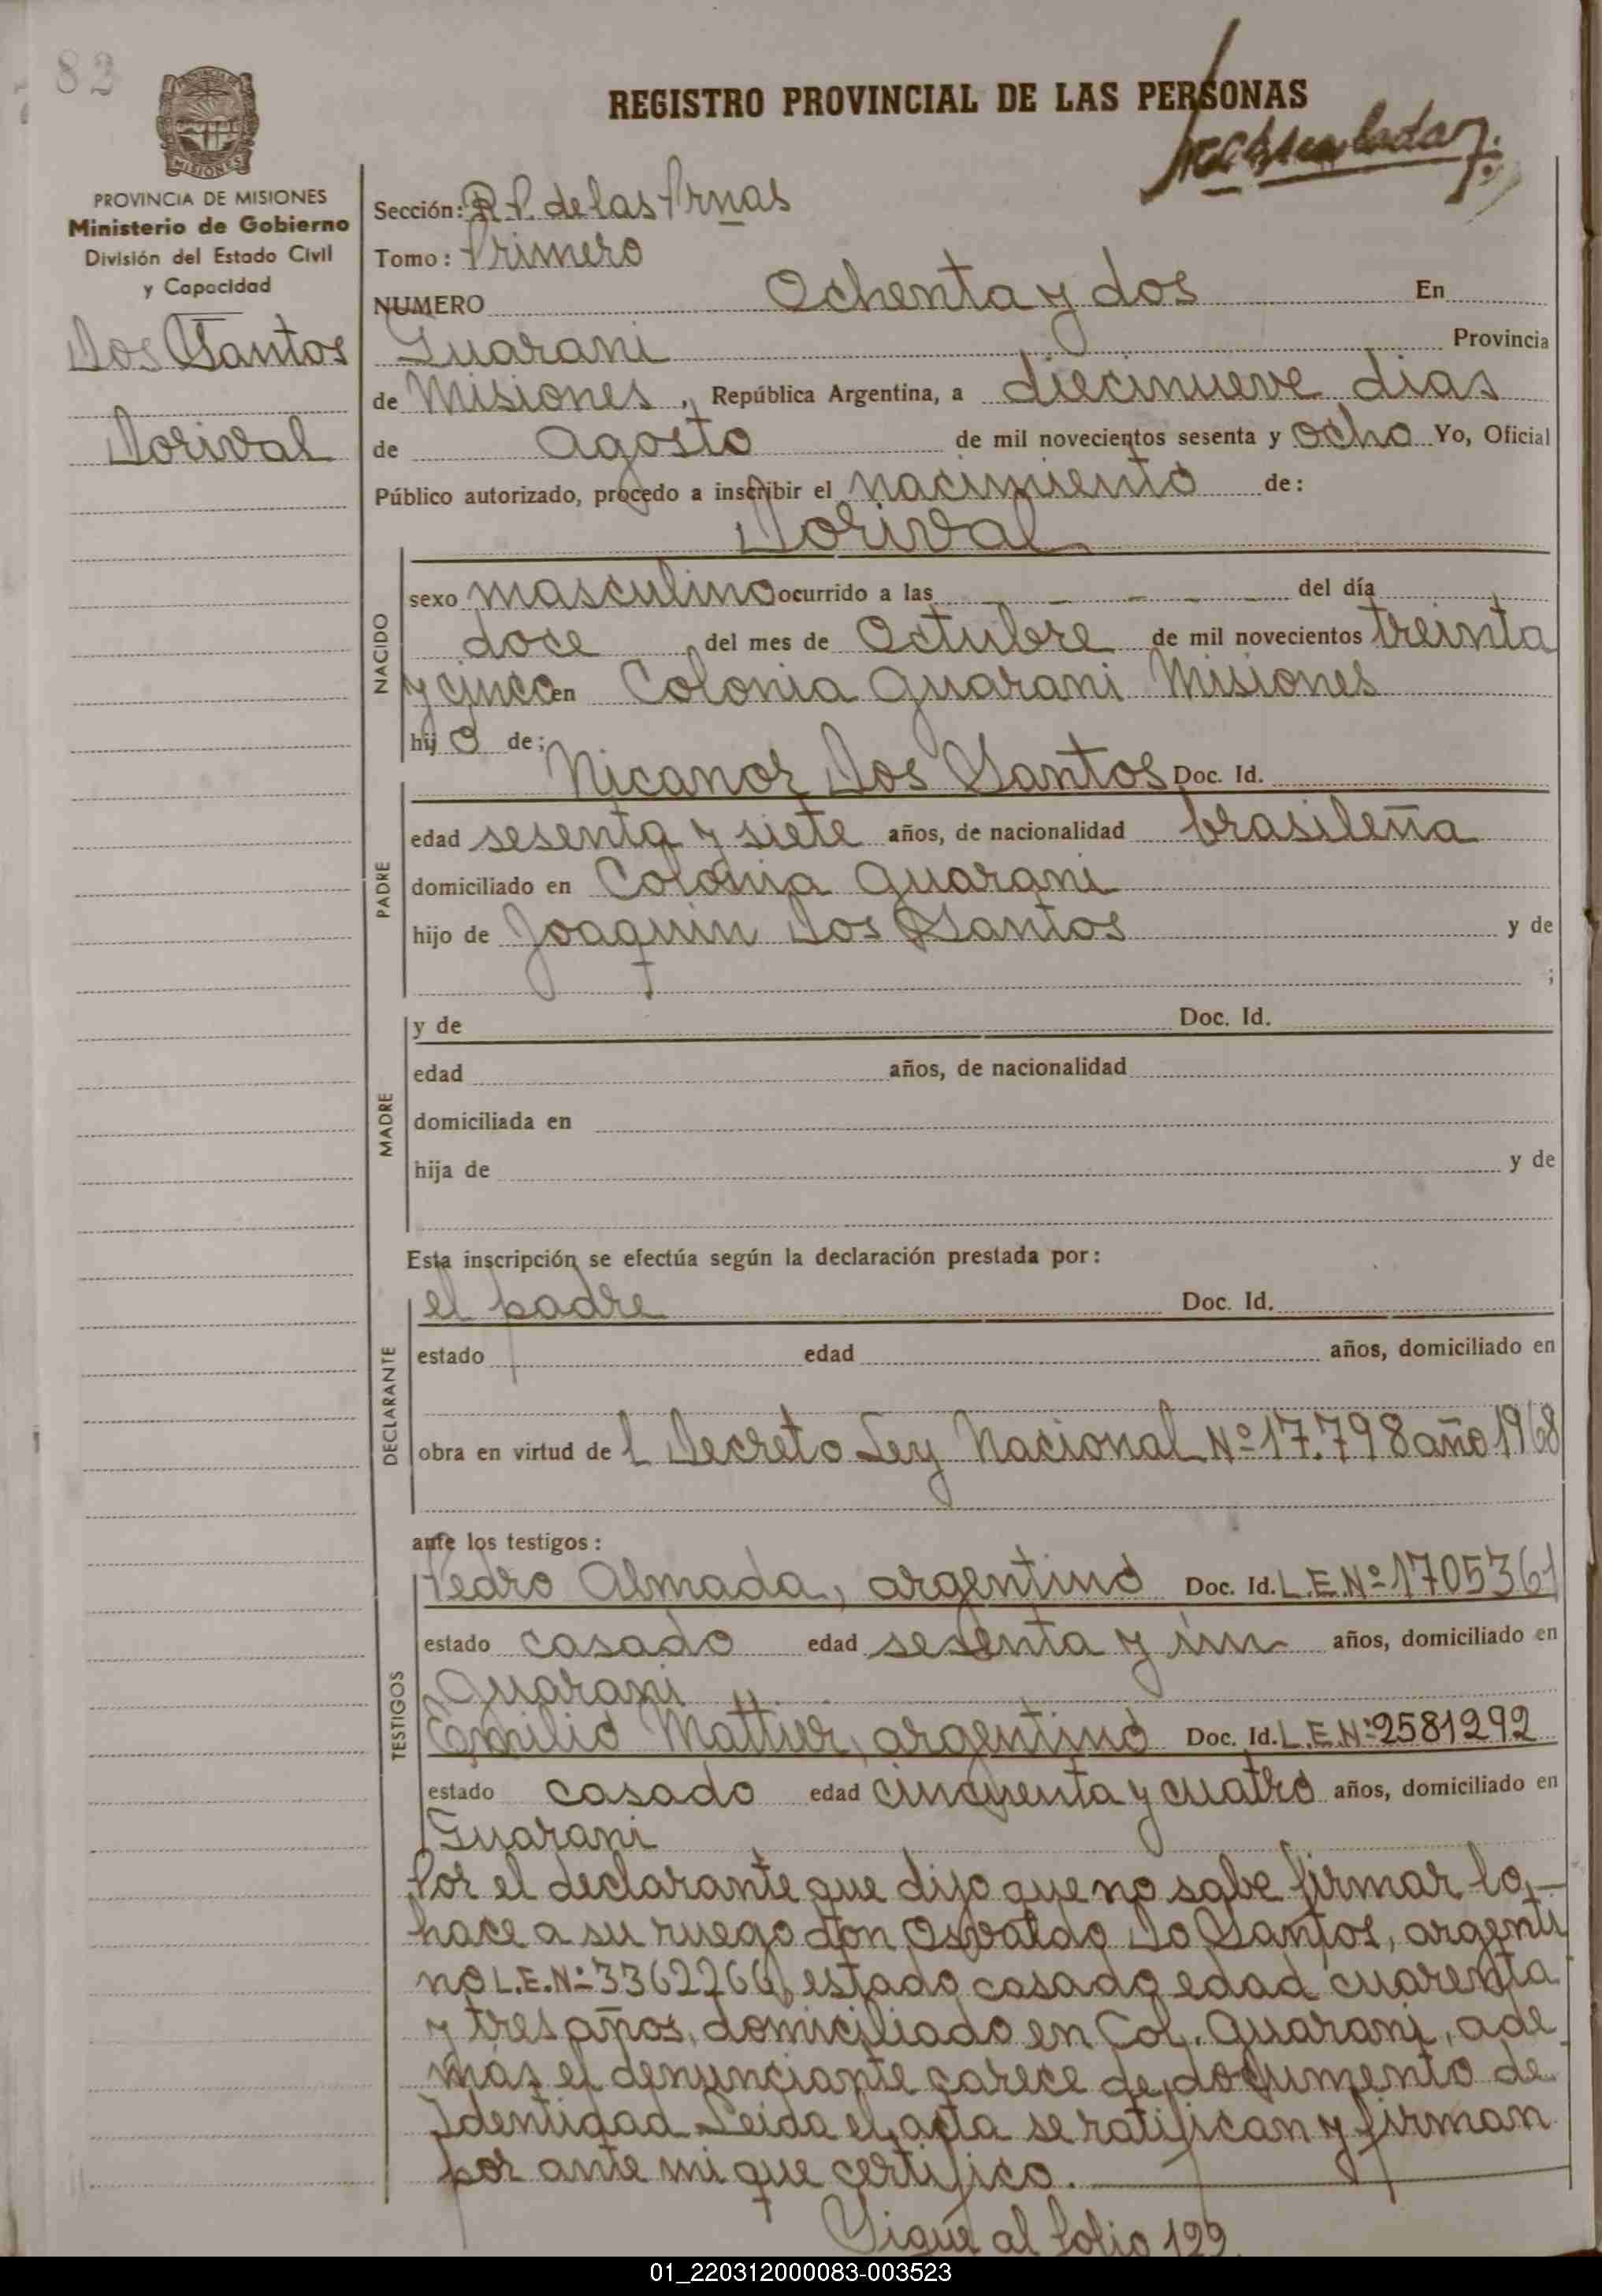 82
REGISTRO PROVINCIAL DE LAS PERSONAS
PROVINCIA DE MISIONES
Ministerio de Gobierno
División del Estado Civil
y Capacidad
Dos Santos
Dorival
Sección: R.P. de las Prnas
Tomo: Primero
NUMERO Ochenta y dos En
Guarani Provincia
de Misiones, República Argentina, a diecinueve dias
de agosto de mil novecientos sesenta y ocho Yo, Oficial
Público autorizado, procedo a inscribir el nacimiento de:
Dorival
NACIDO
sexo masculino ocurrido a las - - - - del día
doce del mes de Octubre de mil novecientos treinta
y cinco en Colonia Guarani Misiones
hijo de;
PADRE
Nicanor Dos Santos Doc. Id.
edad sesenta y siete años, de nacionalidad brasileña
domiciliado en Colonia Guarani
hijo de Joaquin Dos Santos y de
;
MADRE
y de Doc. Id.
edad años, de nacionalidad
domiciliada en
hija de y de
Esta inscripción se efectúa según la declaración prestada por:
DECLARANTE
el padre Doc. Id.
estado edad años, domiciliado en
obra en virtud del Decreto Ley Nacional Nº 17.798 año 1968
ante los testigos:
TESTIGOS
Pedro Almada, argentino Doc. Id. L.E.Nº 1705361
estado casado edad sesenta y un años, domiciliado en
Guarani
Emilio argentino Doc. Id. L.E.Nº 2581292
estado casado edad cincuenta y cuatro años, domiciliado en
Guarani
Por el declarante que dijo que no sabe firmar lo
hace a su ruego don Osvaldo Do Santos, argenti
no L.E.Nº 3362266, estado casado edad cuarenta
y tres años, domiciliado en Col. Guarani, ade
más el denunciante carece de documento de
Identidad Leida el acta se ratifican y firman
por ante mi que certifico.
Sigue al folio 122
01_220312000083-003523